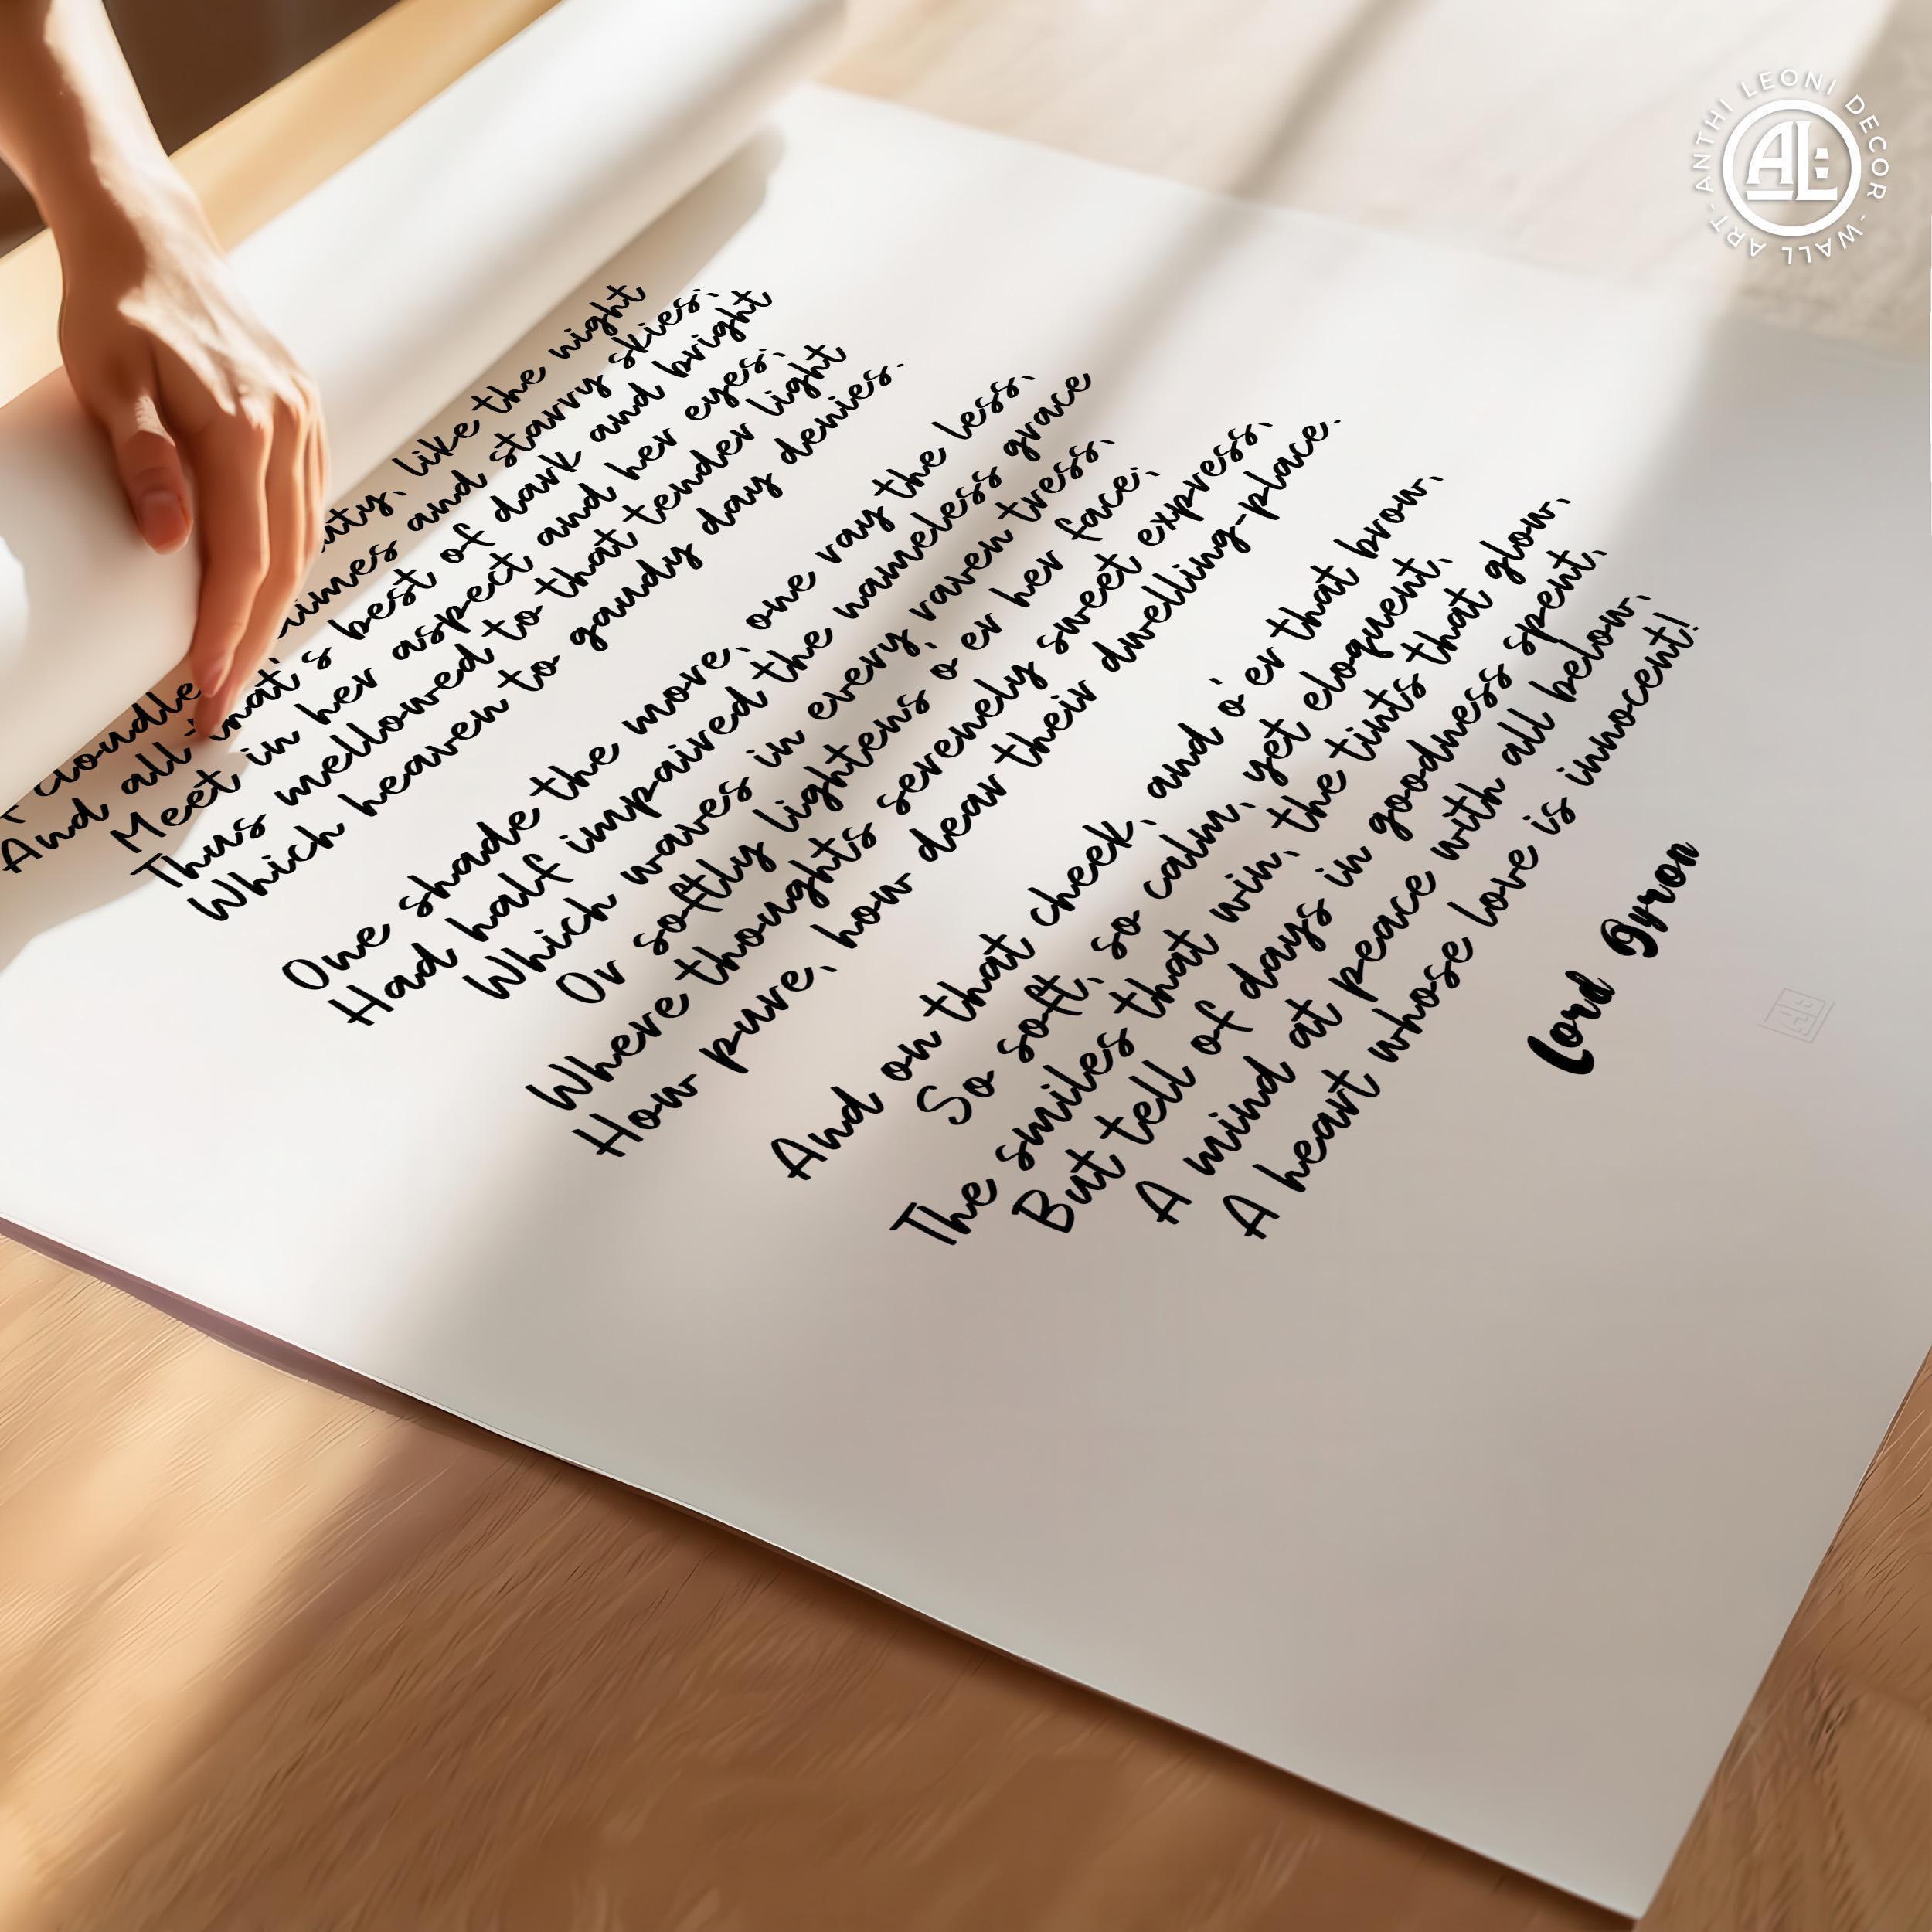 like the night
and starry skies;
And all that's best of dark and bright
Meet in her aspect and her eyes;
Thus mellowed to that tender light
Which heaven to gaudy day denies.
One shade the more, one ray the less,
Had half impaired the nameless grace
Which waves in every raven tress,
Or softly lightens o'er her face;
Where thoughts serenely sweet express,
How pure, how dear their dwelling-place.
And on that cheek, and o'er that brow,
So soft, so calm, yet eloquent,
The smiles that win, the tints that glow,
But tell of days in goodness spent,
A mind at peace with all below,
A heart whose love is innocent!
Lord Byron
ANTHI LEONI DECOR - WALL ART -
AL